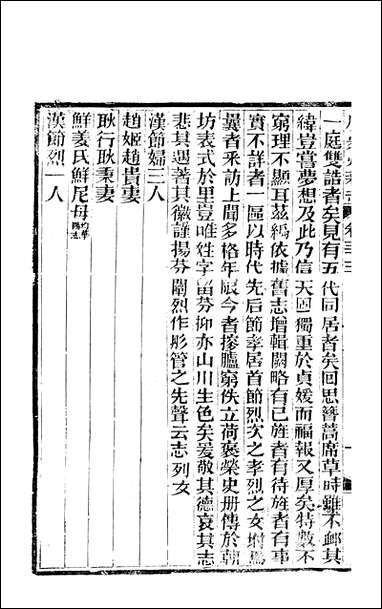 一庭雙誥者矣見有五代同居者矣回思簪蒿席草時雖不邮其
緯豈嘗夢想及此乃信天固獨重於貞媛而福報又厚矣特數不
窮理不顯耳茲編依據舊志增輯闕略有已旌者有待旌者有事
實不詳者一區以時代先后節孝居首節烈次之孝烈之女坿焉
曩者釆訪上聞多格年辰今者搽臚窮佚立荷褒榮史册傳於朝
坊表式於里豈唯姓字留芬抑亦山川生色矣爰敬其德哀其志
悲其遇著其徽謹揚芬闡烈作彤管之先聲云志列女
漢節婦三人
趙姬趙貴妻
耿行耿秉妻
鮮姜氏鮮尼母
漢節烈一人